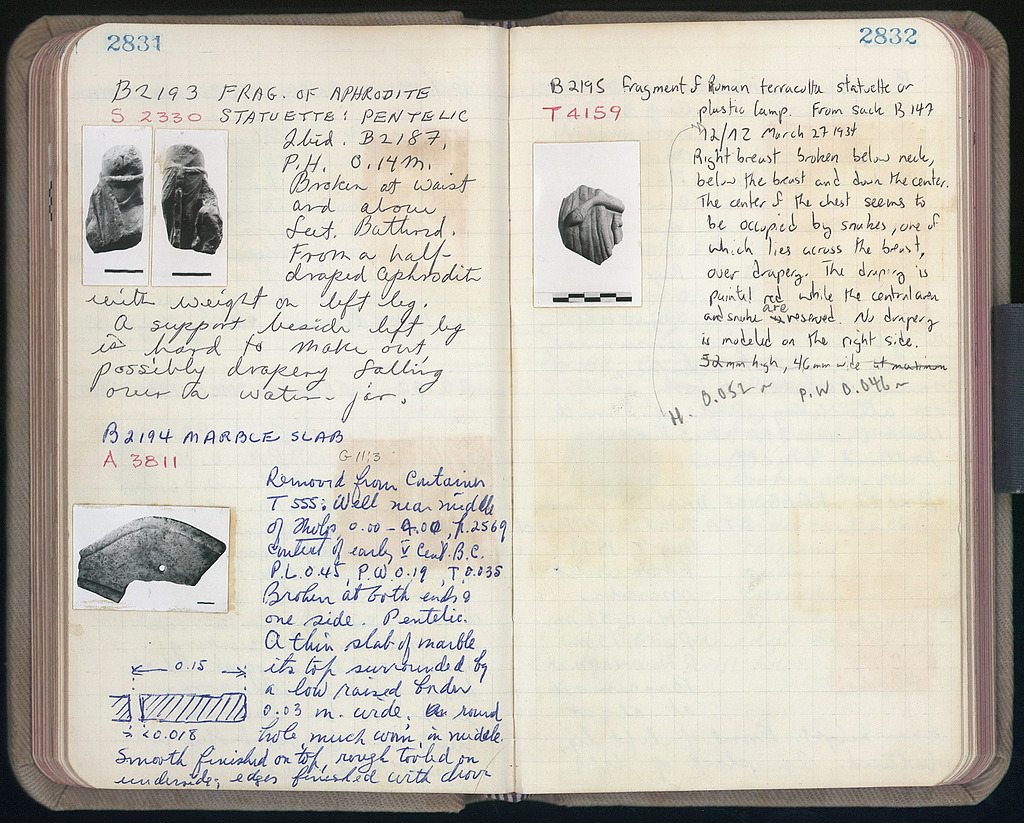 2831
B2193 FRAG. OF APHRODITE
S 2330 STATUETTE: PENTELIC
Ibid. B2187,
P.H. 0.14 M.
Broken at waist
and above
feet. Battered.
From a half-
draped Aphrodite
with weight on left leg.
A support beside left leg
is hard to make out,
possibly drapery falling
over a water-jar.
B2194 MARBLE SLAB
A 3811
G 11:3
Removed from Container
T 555: Well near middle
of Tholos, 0.00 - 4.00, p. 2569
context of early V Cent. B.C.
P.L. 0.45, P.W. 0.19, T. 0.035
Broken at both ends &
one side. Pentelic.
A thin slab of marble
its top surrounded by
a low raised border
0.03 m. wide. round
hole, much worn, in middle.
0.15
0.018
Smooth finished on top, rough tooled on
underside; edges finished with drove
2832
B2195 Fragment of Roman terracotta statuette or
T 4159
plastic lamp. From sack B 147
12/ΙΖ March 27 1934
Right breast broken below neck,
below the breast and down the center.
The center of the chest seems to
be occupied by snakes, one of
which lies across the breast,
over drapery. The drapery is
painted red while the central area
and snake are reserved. No drapery
is modeled on the right side.
52mm high, 46mm wide at maximum
H. 0.052 ~ P.W 0.046 ~